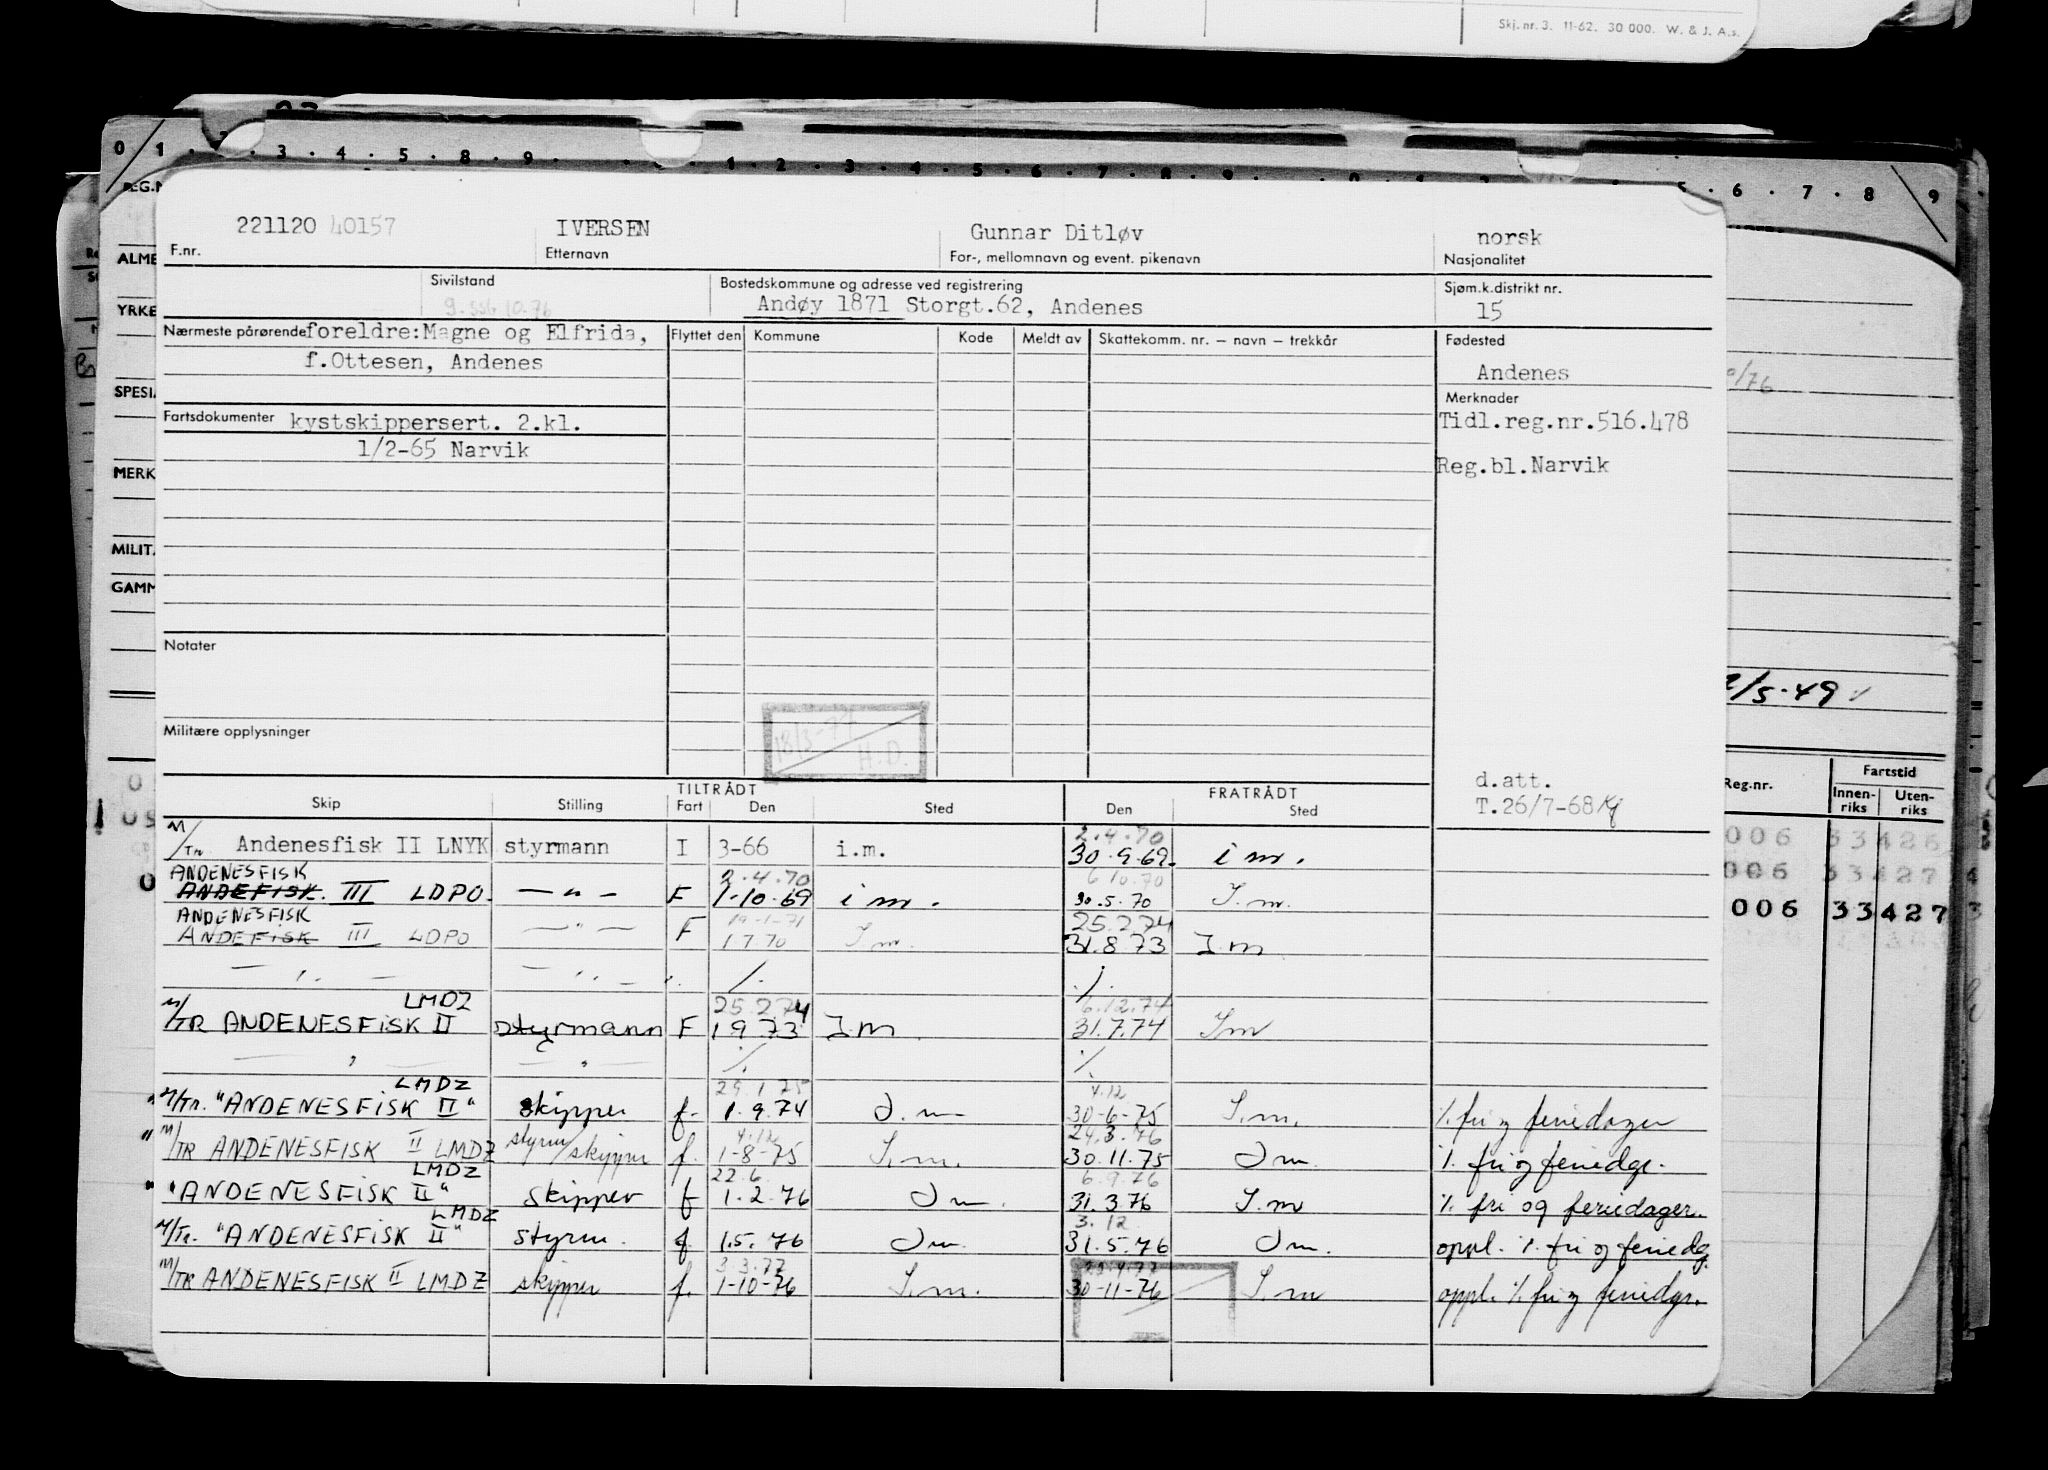 Skj. nr. 3. 11-62. 30 000. W. & J. A.s.
0 1 . 3 . 4 . 5 . 8 . 9 . 1 . 2 . 3 . 4 . 5 . 6 . 7 . 8 . 9 . 6 . 7 . 8 . 9
ALME
YRKE
SPESIA
MERK
MILIT.
GAMM
221120 40157 IVERSEN Gunnar Ditløv norsk
F.nr. Etternavn For-, mellomnavn og event. pikenavn Nasjonalitet
Sivilstand Bostedskommune og adresse ved registrering Sjøm.k.distrikt nr.
g. ssb 10.76 Andøy 1871 Storgt.62, Andenes 15
Nærmeste pårørende foreldre:Magne og Elfrida, Flyttet den Kommune Kode Meldt av Skattekomm. nr. – navn – trekkår Fødested
f.Ottesen, Andenes Andenes
Merknader
Fartsdokumenter kystskippersert. 2.kl. Tidl.reg.nr.516.478
1/2-65 Narvik Reg.bl.Narvik
Notater
2/5.49
Militære opplysninger
18/3-77
H.D.
d.att.
T.26/7-68
TILTRÅDT FRATRÅDT
Skip Stilling Fart Den Sted Den Sted
Reg.nr. Fartstid
Innen-riks Uten-riks
2.4.70
M/Tr Andenesfisk II LNYK styrmann I 3-66 i.m. 30.9.69. i m.
006 33426
ANDENESFISK 2.4.70 6 10.70
ANDEFISK. III LDPO. —"— F 1.10.69 i m. 30.5.70 I.m.
006 33427
ANDENESFISK 19-1-71 25.2.74
ANDEFISK III LDPO —"— F 1.7.70 I m. 31.8.73 I.m
006 33427
— " — — " — . /. ./.
LMDZ 25.2.74 6.12.74
M/TR ANDENESFISK II styrmann F 1 9 73 I.m. 31.7.74 I m
— " — — " — /. ./.
LMDZ 29.1 75 4.12
"M/Tr. "ANDENESFISK II" skipper f. 1.9.74 I.m 30-6-75 I.m. ./. fri og feriedager
4.12 24.3.76
" M/TR ANDENESFISK II LMDZ styrm/skipper f. 1-8-75 I.m. 30.11.75 I m. ./. fri og feriedgr.
LMDZ 22.6. 6.9.76
" "ANDENESFISK II" skipper f 1.2.76 I m. 31.3.76 I.m ./. fri og feriedager.
LMDZ 3.12
M/Tr. "ANDENESFISK II" styrm. f 1.5.76 I m. 31.5.76 I m. oppl. ./. fri og feriedg.
3.3.77
M/TR ANDENESFISK II LMDZ skipper f. 1-10-76 I.m. 30-11-76 I.m oppl. ./. fri og feriedgr.